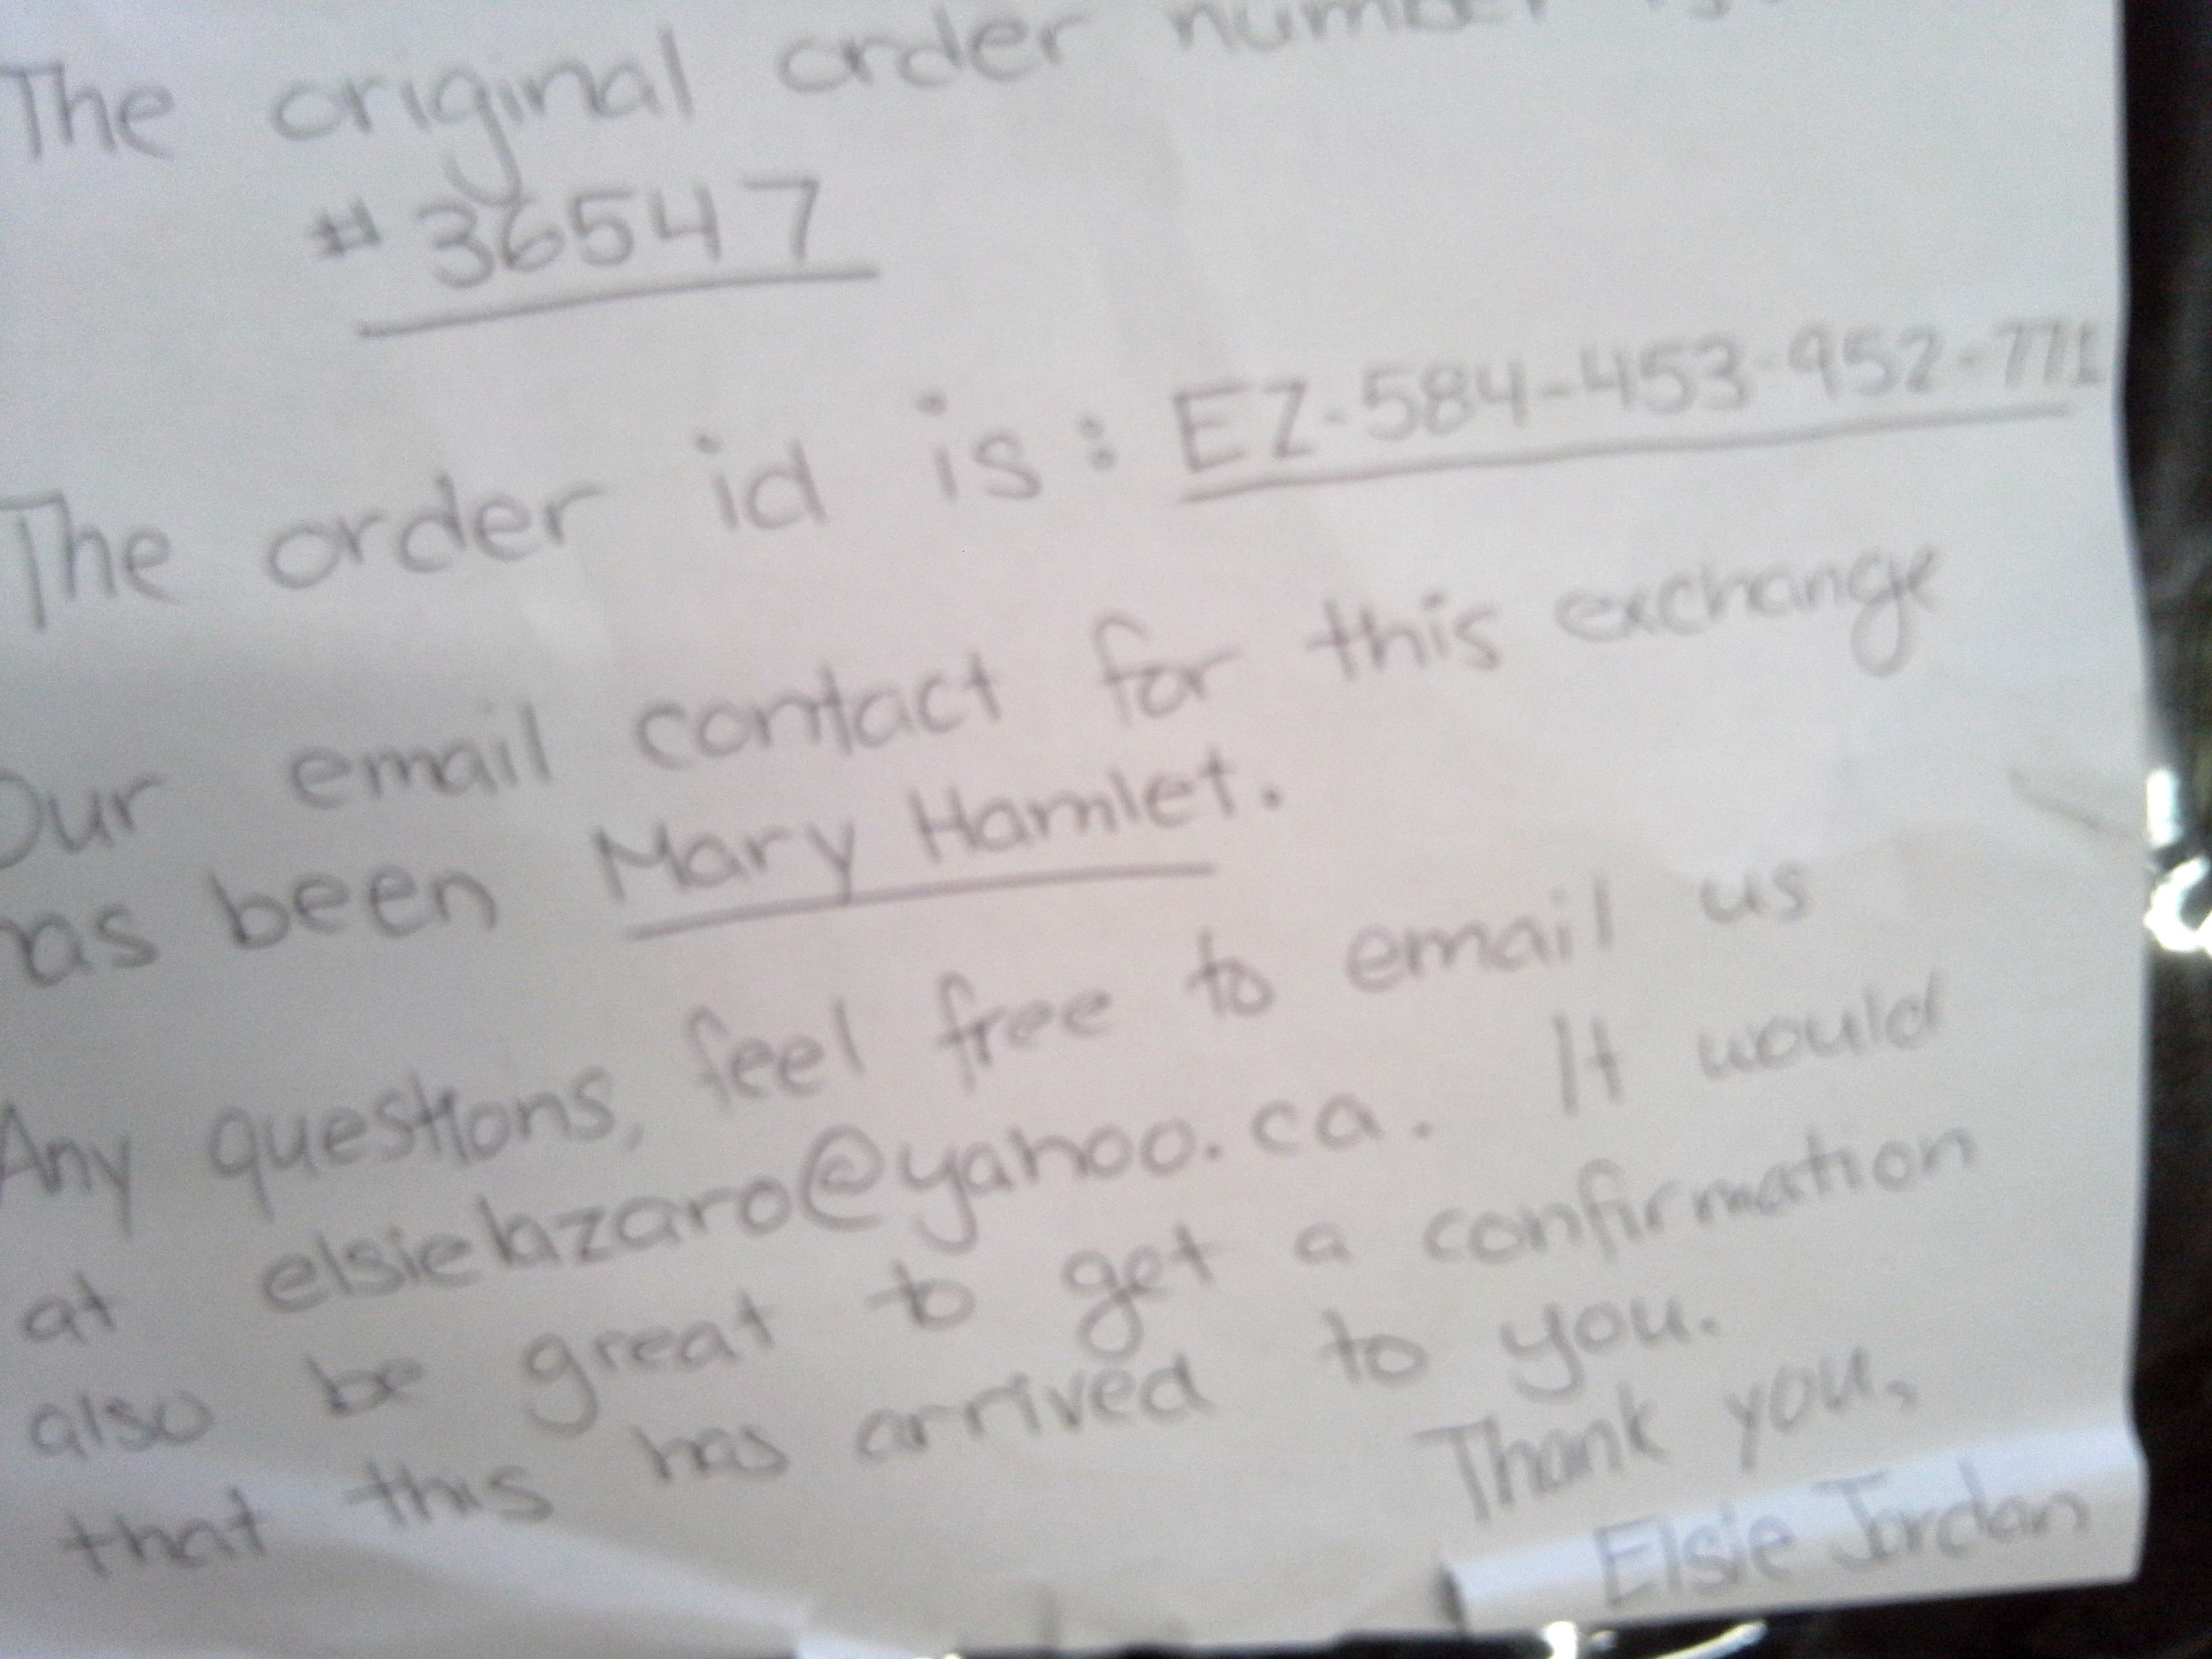 The original order number is
#36547
The order id is: EZ-584-453-952-771
Our email contact for this exchange
has been Mary Hamlet.
Any questions, feel free to email us
at elsielazaro@yahoo.ca. It would
also be great to get a confirmation
that this has arrived to you.
Thank you,
Elsie Jordan